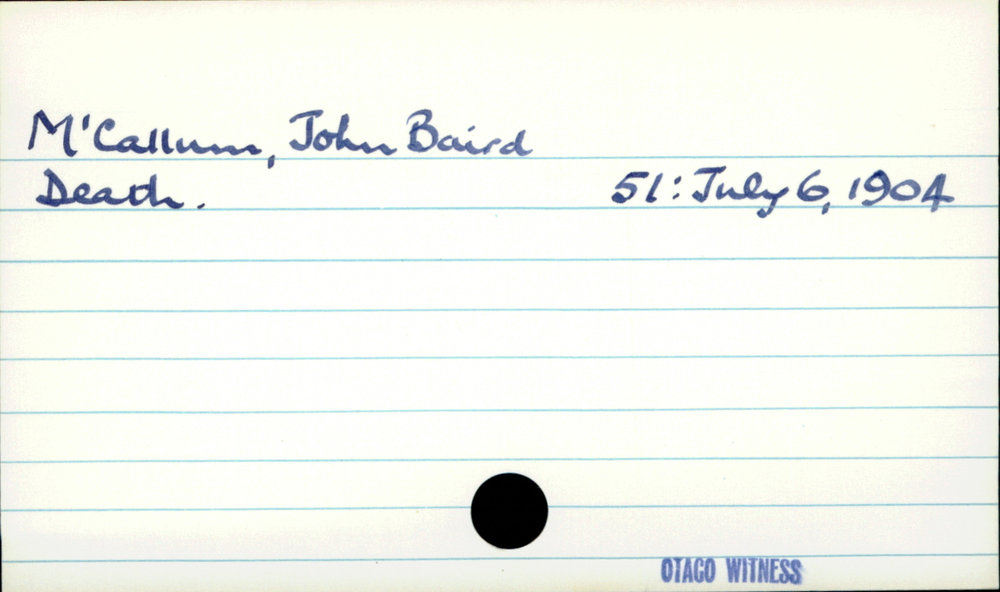 M'Callum, John Baird
Death. 51: July 6, 1904
OTAGO WITNESS